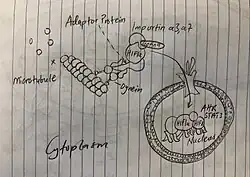 Adaptor Protein
Importin α3,α7
HIF1α
Microtubule
Dynein
AHR
STAT3
HIF1α
Nucleus
Cytoplasm